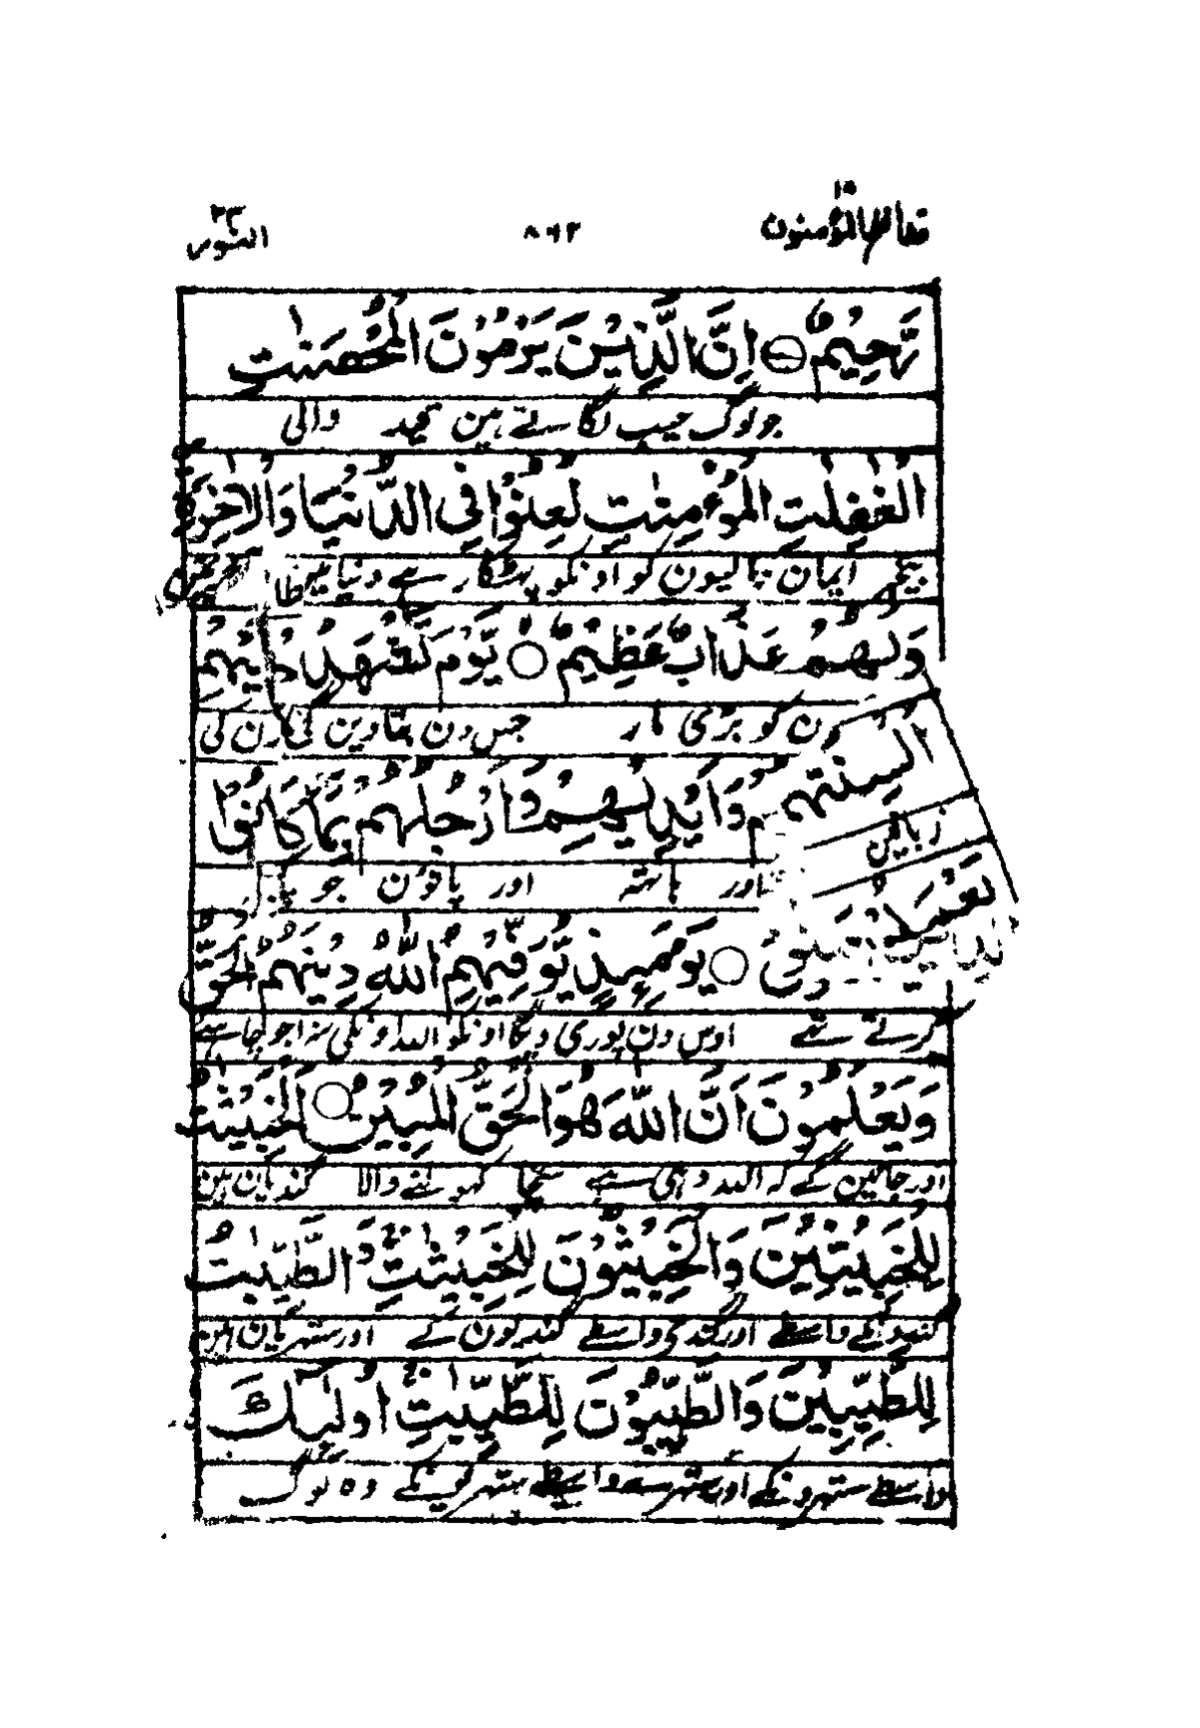 النور ٢٣ ٨٦٢
رَّحِيْمٌ اِنَّ الَّذِيْنَ يَرْمُوْنَ الْمُحْصَنٰتِ
جو لوگ عیب لگاتے ہین قید والی
الْغٰفِلٰتِ الْمُؤْمِنٰتِ لُعِنُوْا فِى الدُّنْيَا وَالْاٰخِرَةِ
بیخبر ایمان والیون کو اونکو پھٹکار ہے دنیا مین
وَلَهُمْ عَذَابٌ عَظِيْمٌ يَّوْمَ تَشْهَدُ عَلَيْهِمْ
کو بڑی مار جس دن بتا دین گی اون کی
اَلْسِنَتُهُمْ وَاَيْدِيْهِمْ وَاَرْجُلُهُمْ بِمَا كَانُوْا
زبانین اور ہاتھ اور پانون جو
يَعْمَلُوْنَ يَوْمَىِٕذٍ يُّوَفِّيْهِمُ اللّٰهُ دِيْنَهُمُ الْحَقَّ
کرتے تھے اوس دن پوری دیگا اونکو اللہ اونکی سزا جو چاہیے
وَيَعْلَمُوْنَ اَنَّ اللّٰهَ هُوَ الْحَقُّ الْمُبِيْنُ اَلْخَبِيْثٰتُ
اور جانین گے کہ اللہ وہی ہے سچا کھولنے والا گندیان ہین
لِلْخَبِيْثِيْنَ وَالْخَبِيْثُوْنَ لِلْخَبِيْثٰتِ وَالطَّيِّبٰتُ
گندونکے واسطے اور گندے واسطے گندیون کے اور ستھریان ہین
لِلطَّيِّبِيْنَ وَالطَّيِّبُوْنَ لِلطَّيِّبٰتِ اُولٰىِٕكَ
واسطے ستھرونکے اور ستھرے واسطے ستھریونکے وہ لوگ